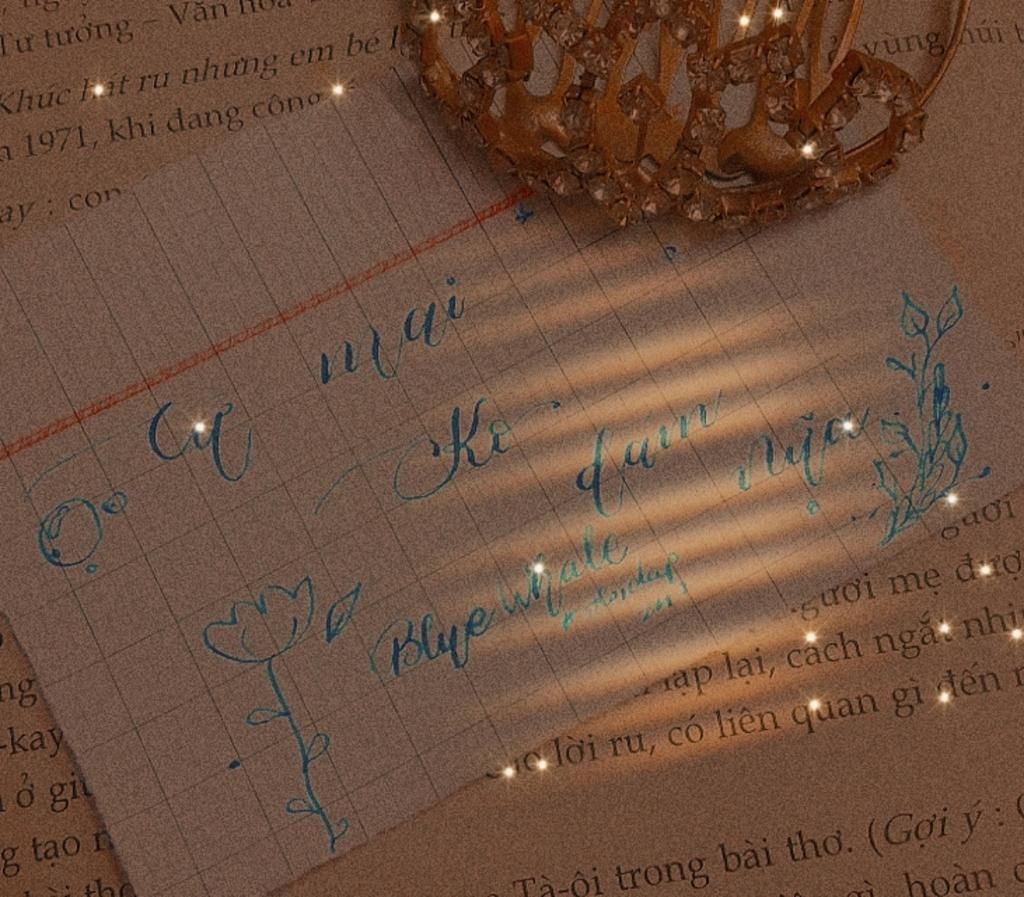 Tư tưởng – Văn hoá
Khúc hát ru những em bé
1971, khi đang công
: con
vùng núi
mai
Cụ
Ko dám nữa
Blue Whale
người
người mẹ đượ
lặp lại, cách ngắt nhị
cho lời ru, có liên quan gì đến
ng
-kay
ở giữ
g tạo
bài thơ
Tà-ôi trong bài thơ. (Gợi ý :
gì, hoàn